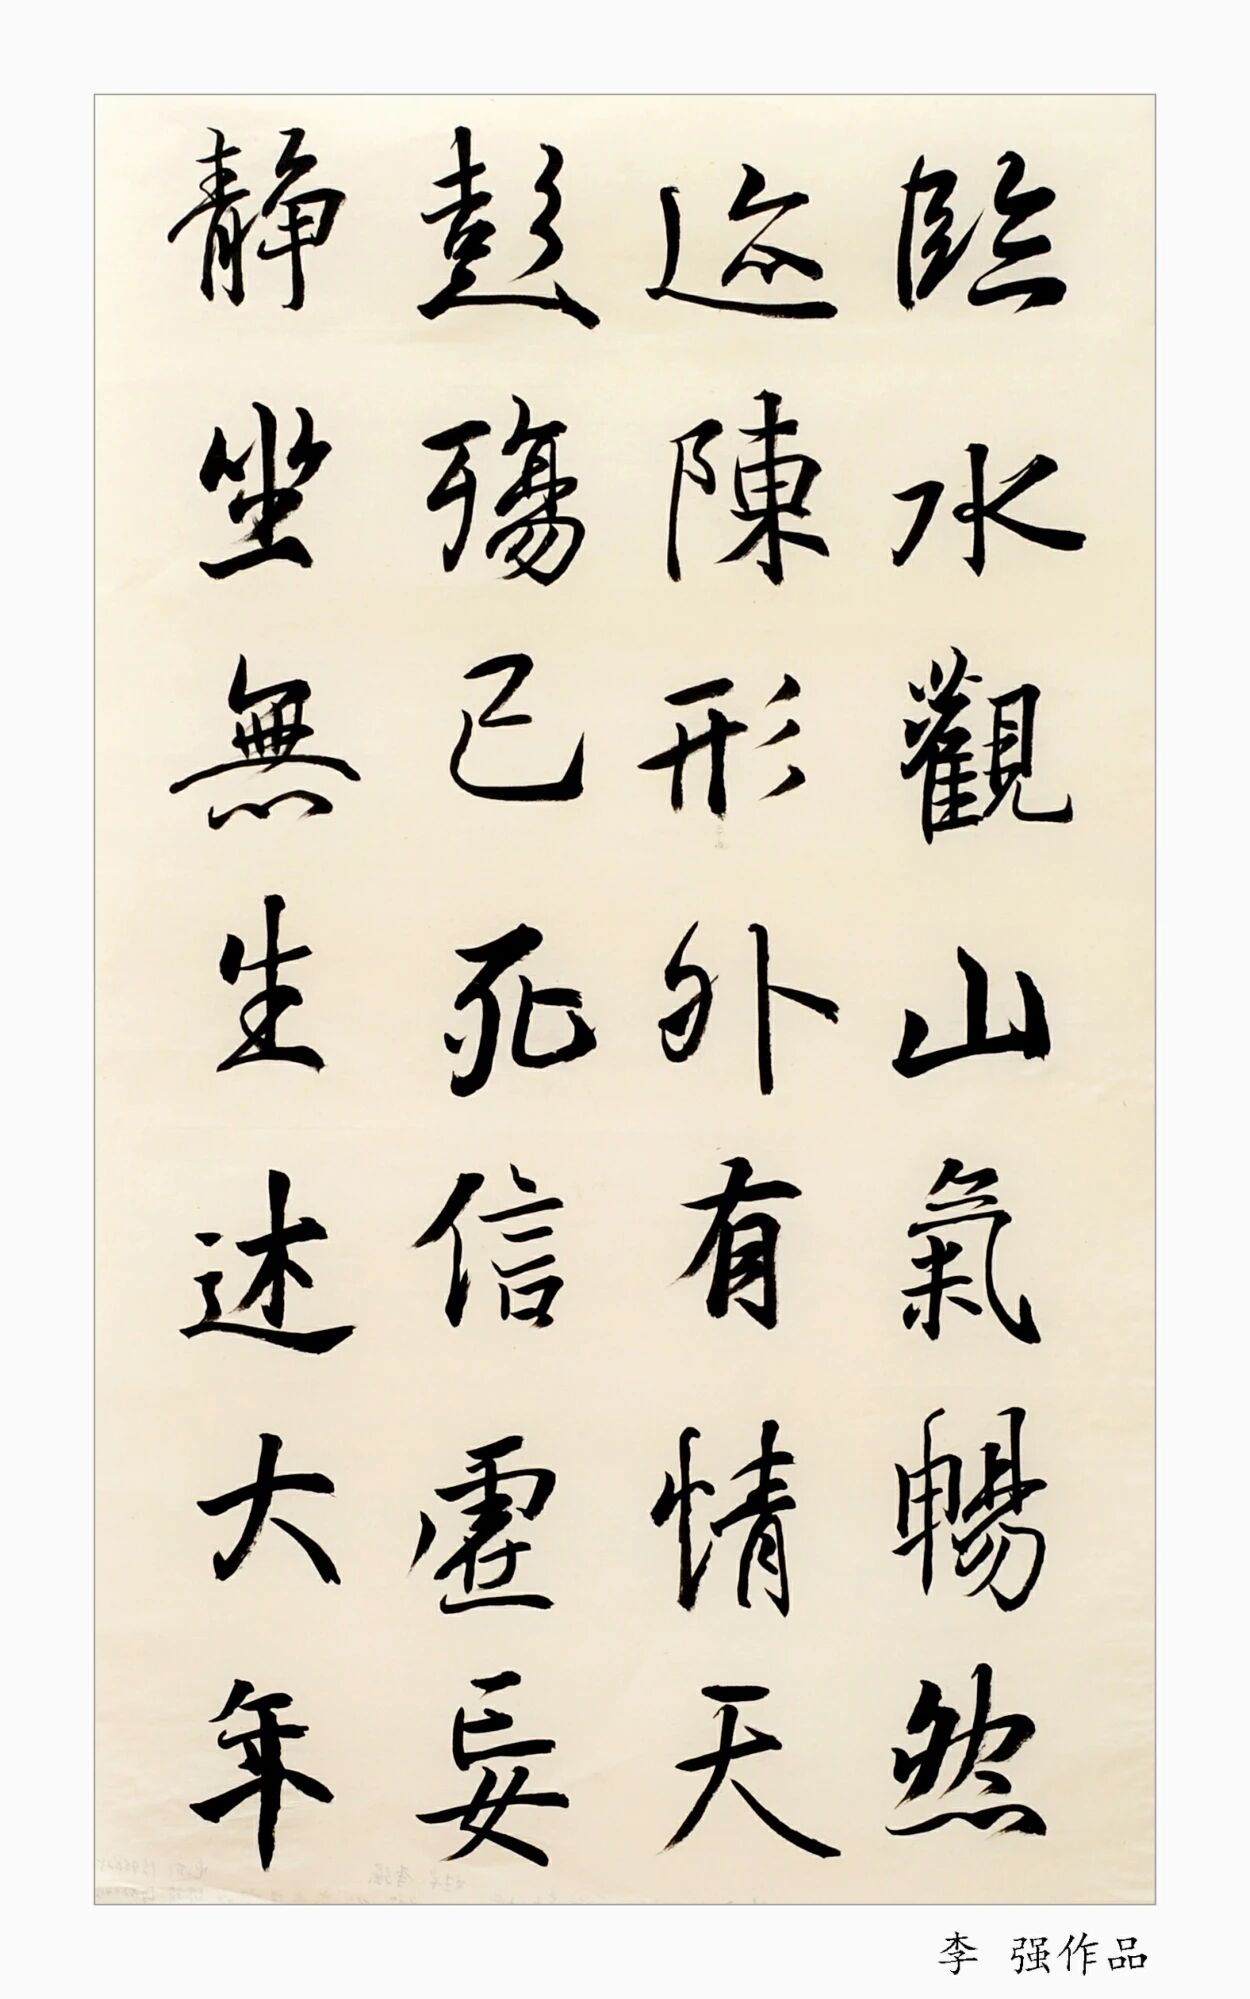 臨水觀山氣暢然
迹陳形外有情天
彭殤已死信虛妄
靜坐無生述大年
李 强作品